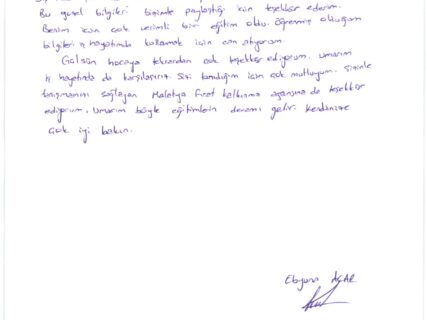 Bu güzel bilgileri bizimle paylaştığı için teşekkür ederim.
Benim için çok verimli bir eğitim oldu. Öğrenmiş olduğum
bilgileri iş hayatımda kullanmak için can atıyorum.
Gülsün hocaya tekrardan çok teşekkür ediyorum. Umarım
iş hayatında da karşılaşırız. Sizi tanıdığım için çok mutluyum. Sizinle
tanışmamızı sağlayan Malatya Fırat kalkınma ajansına da teşekkür
ediyorum. Umarım böyle eğitimlerin devamı gelir. Kendinize
çok iyi bakın.
AÇAR